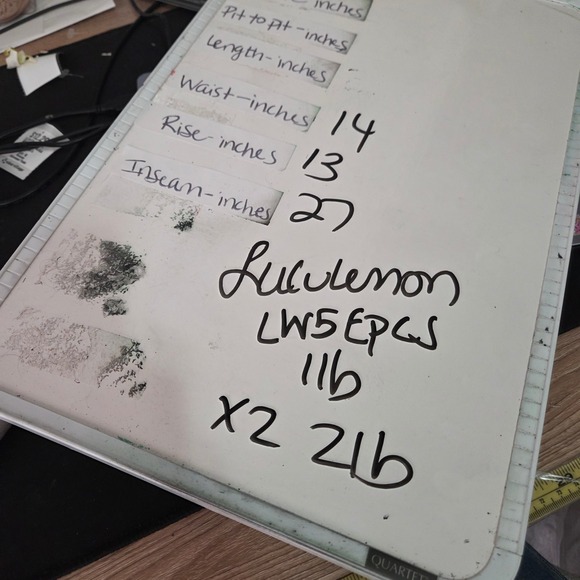 inches
Pit to Pit - inches
Length - inches
Waist - inches 14
Rise - inches 13
Inseam - inches 27
Lululemon
LW5EPCS
1lb
X2 2lb
QUARTET